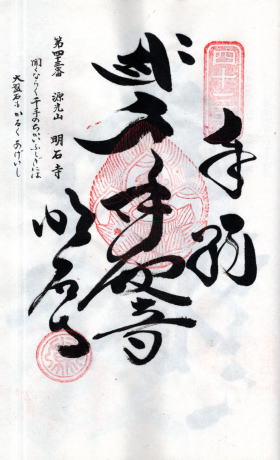 四十三
奉納
千手観音
明石寺
第四十三番 源光山 明石寺
聞くならく千手のちかいふしぎには
大盤石もかろくあげいし